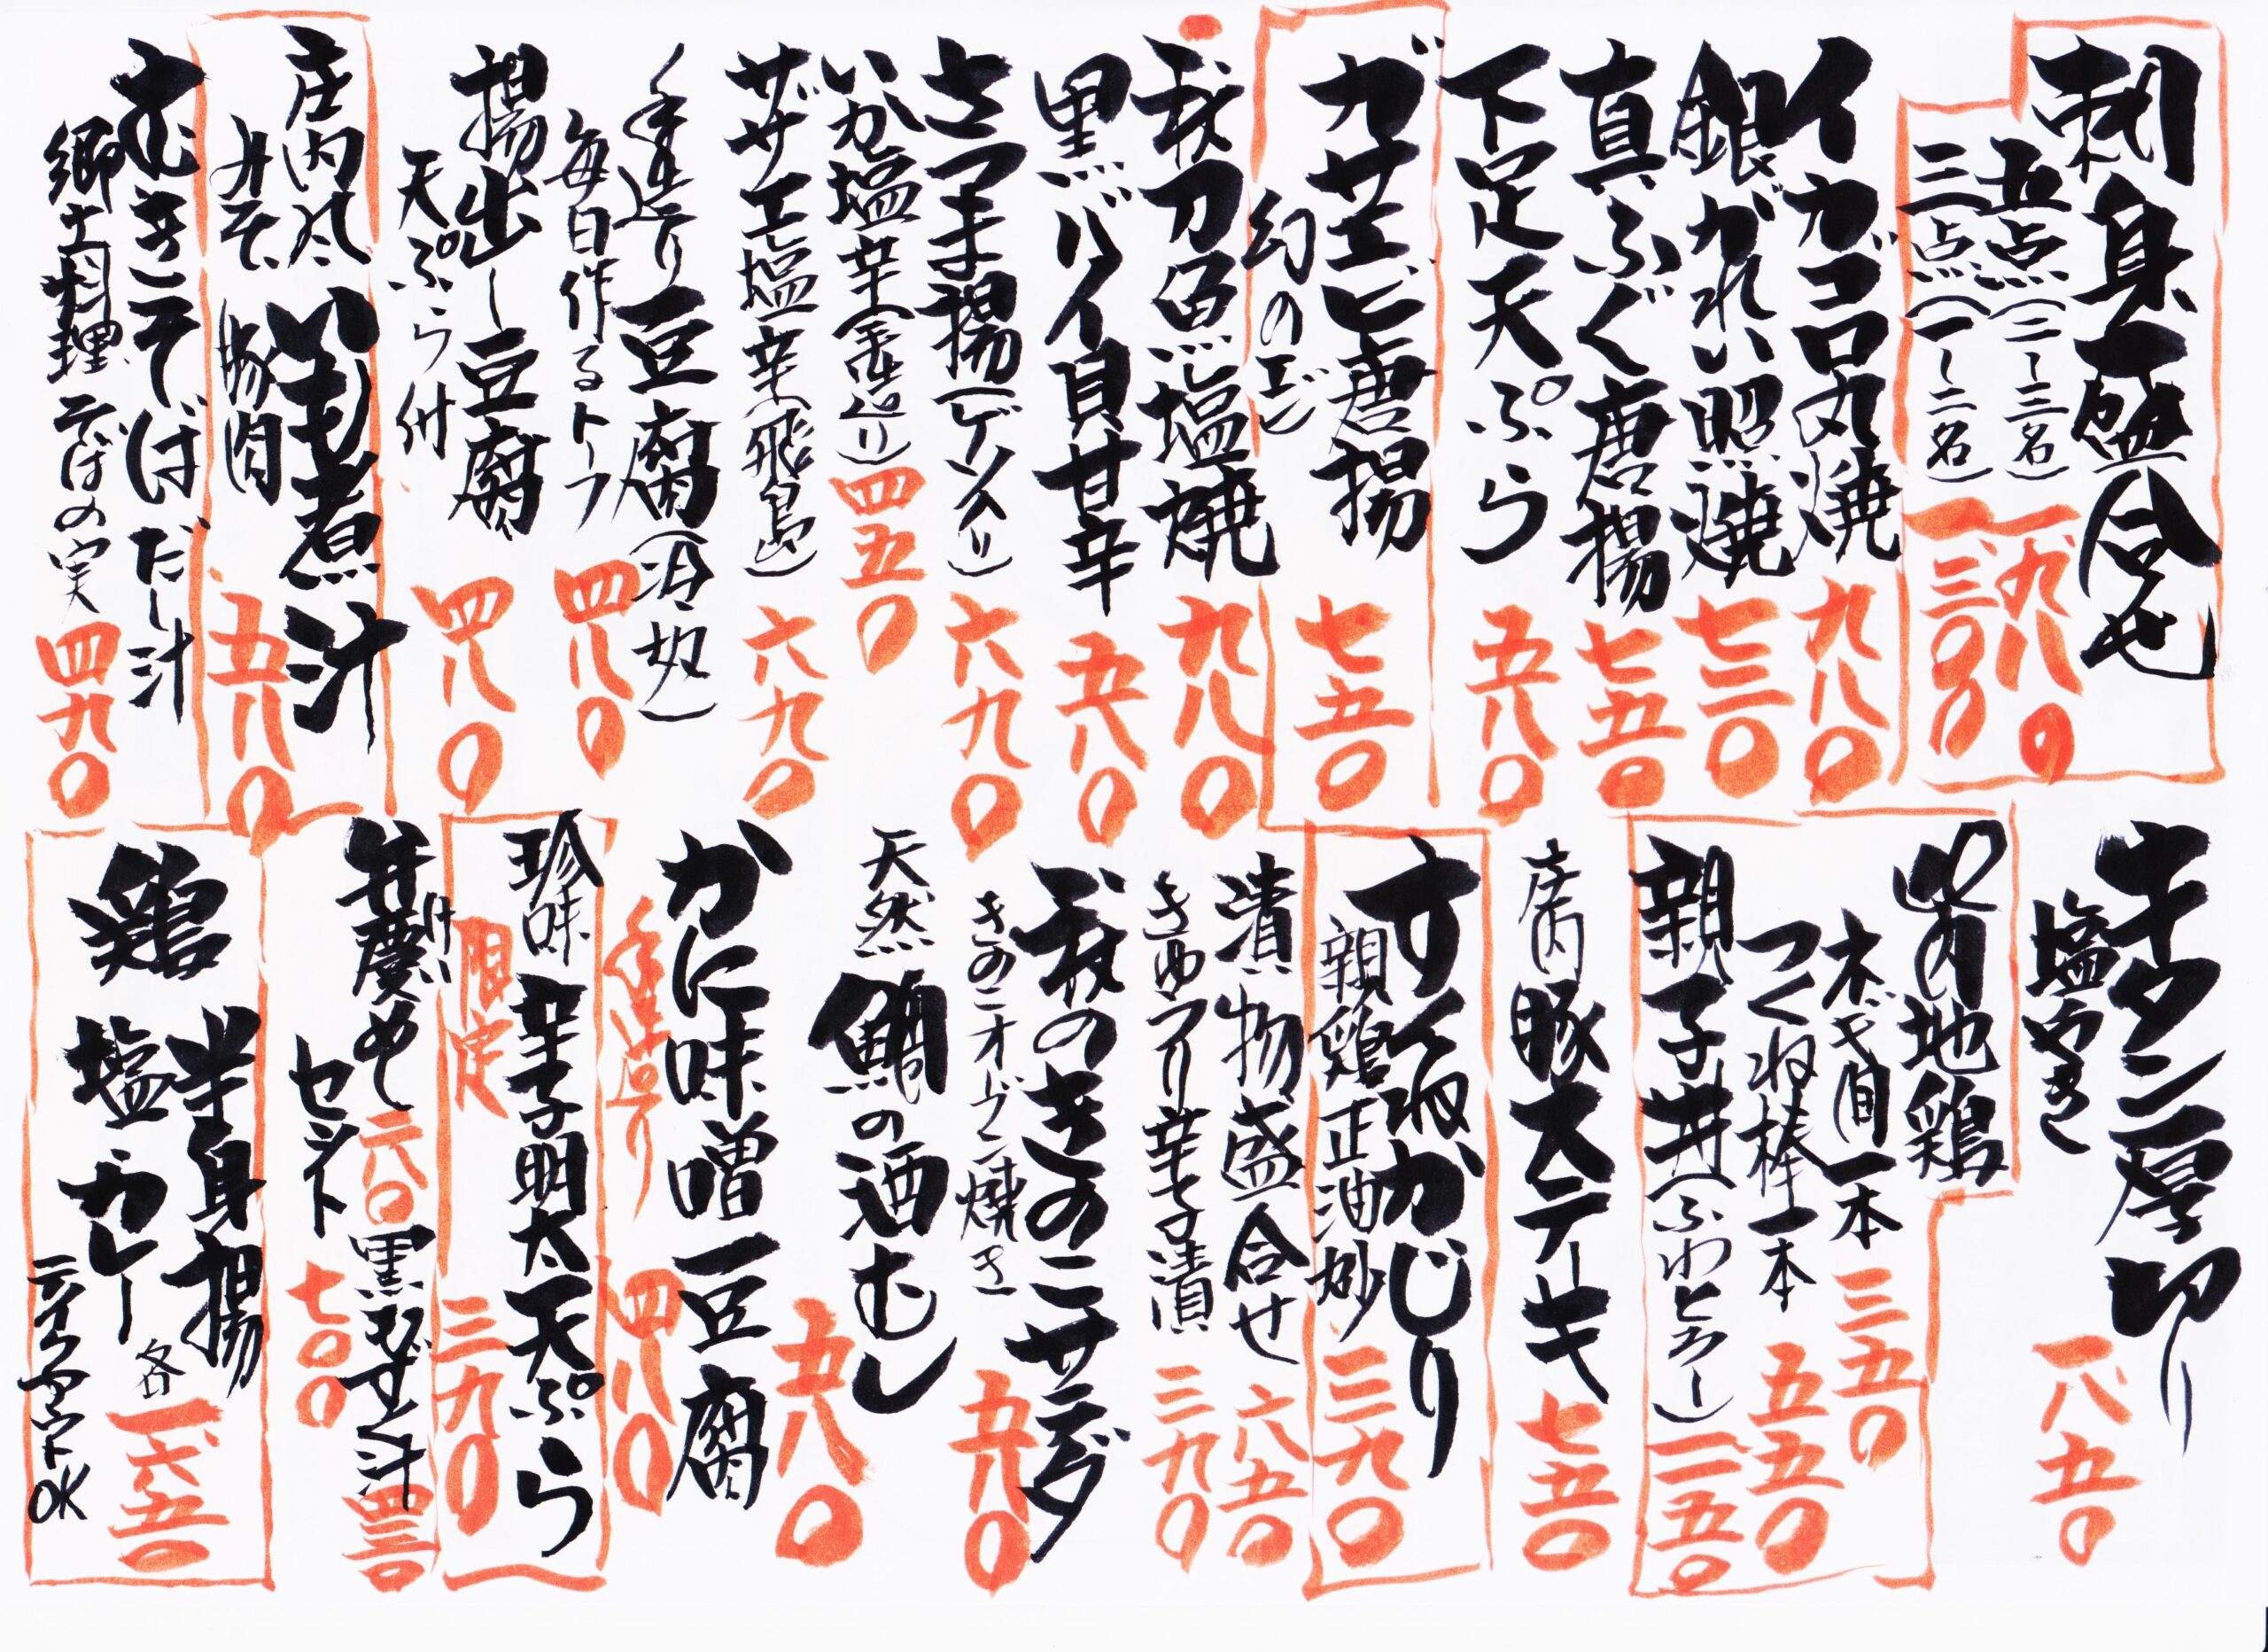 刺身盛合せ
五点(二〜三名) 一九八〇
三点(一〜二名) 一三〇〇
イカゴロ丸焼 九八〇
銀がれい照焼 七三〇
真ふぐ唐揚 七五〇
下足天ぷら 五八〇
ガサエビ唐揚 七五〇
幻のエビ
秋刀魚塩焼 九八〇
黒バイ貝甘辛 五八〇
さつま揚(ゲソ入り) 六九〇
いか塩辛(手造り) 四五〇
サザエ塩辛(飛島) 六九〇
手造り豆腐(冷奴)
毎日作るトーフ 四八〇
揚出し豆腐 四八〇
天ぷら付
庄内風いも煮汁
みそ 豚肉 五八〇
むきそばだし汁
郷土料理 そばの実 四九〇
牛タン厚切り
塩やき 一八五〇
山形地鶏
ねぎ間一本 三五〇
つくね棒一本 五五〇
親子丼(ふわとろー) 一一五〇
庄内豚ステーキ 七五〇
すくねかじり
親鶏正油炒 三九〇
漬物盛合せ 六五〇
きゅうり辛子漬 三九〇
秋のきのこサラダ
きのこオーブン焼き 五八〇
天然鯛の酒むし 五八〇
かに味噌豆腐
手造り 四八〇
珍味 辛子明太天ぷら
限定 三九〇
弁慶めし 二六〇 黒もずく汁 四三〇
けい
セット 七〇〇
鶏 半身揚
塩 カレー 各一六五〇
テイクアウトOK